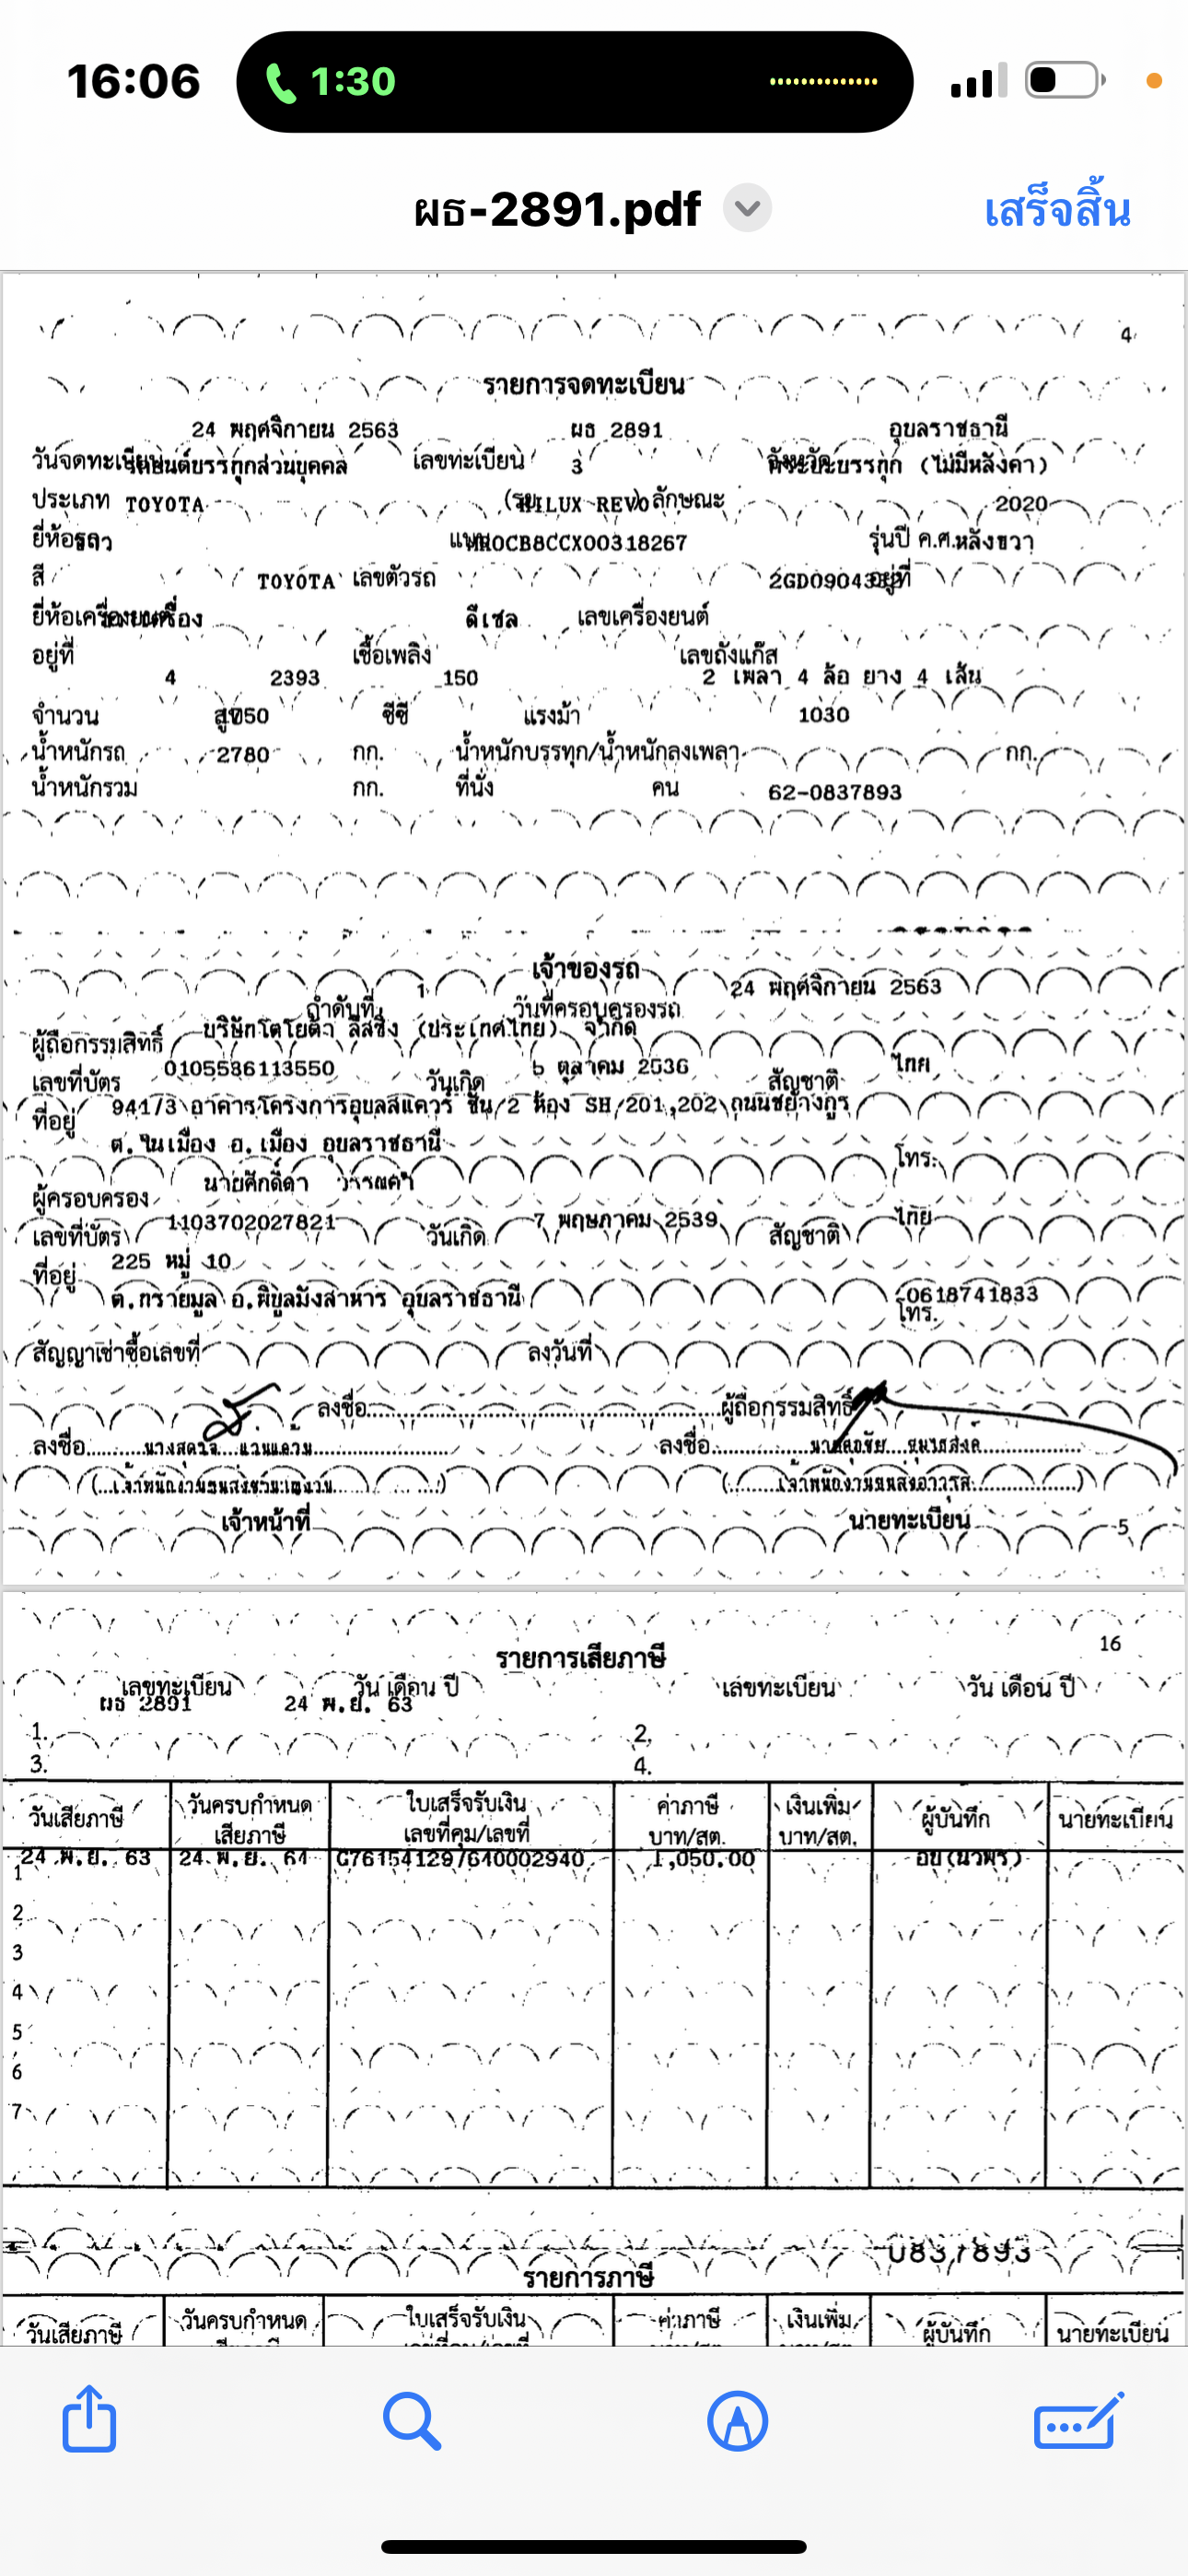 16:06 1:30
ผธ-2891.pdf เสร็จสิ้น
4
รายการจดทะเบียน
24 พฤศจิกายน 2563 ผธ 2891 อุบลราชธานี
วันจดทะเบียน เลขทะเบียน 3 จังหวัด
รถยนต์บรรทุกส่วนบุคคล กระบะบรรทุก (ไม่มีหลังคา)
ประเภท (รย. ) ลักษณะ
TOYOTA HILUX REVO 2020
ยี่ห้อรถ แบบ รุ่นปี ค.ศ.
ขาว MR0CB8CCX00318267 หลังขวา
สี เลขตัวรถ อยู่ที่
TOYOTA
ยี่ห้อเครื่องยนต์ ดีเซล เลขเครื่องยนต์
อยู่ที่ เชื้อเพลิง เลขถังแก๊ส
4 2393 150 2 เพลา 4 ล้อ ยาง 4 เส้น
จำนวน สูบ ซีซี แรงม้า
1750 1030
น้ำหนักรถ กก. น้ำหนักบรรทุก/น้ำหนักลงเพลา กก.
2780
น้ำหนักรวม กก. ที่นั่ง คน
62-0837893
เจ้าของรถ
ลำดับที่ 1 วันที่ครอบครองรถ 24 พฤศจิกายน 2563
ผู้ถือกรรมสิทธิ์ บริษัทโตโยต้า ลีสซิ่ง (ประเทศไทย) จำกัด
เลขที่บัตร 0105536113550 วันเกิด 6 ตุลาคม 2536 สัญชาติ ไทย
ที่อยู่ 941/3 อาคารโครงการอุบลสแควร์ ชั้น 2 ห้อง SH 201,202 ถนนชยางกูร
ต.ในเมือง อ.เมือง อุบลราชธานี
โทร.
ผู้ครอบครอง นายศักดิ์ดา
เลขที่บัตร 1103702027821 วันเกิด 7 พฤษภาคม 2539 สัญชาติ ไทย
ที่อยู่ 225 หมู่ 10
ต.ทรายมูล อ.พิบูลมังสาหาร อุบลราชธานี
โทร. 0618741833
สัญญาเช่าซื้อเลขที่ ลงวันที่
ลงชื่อ ผู้ถือกรรมสิทธิ์
ลงชื่อ ลงชื่อ
(เจ้าพนักงานขนส่งชำนาญงาน) (เจ้าพนักงานขนส่งอาวุโส)
เจ้าหน้าที่ นายทะเบียน
5
16
รายการเสียภาษี
เลขทะเบียน วัน เดือน ปี เลขทะเบียน วัน เดือน ปี
1. ผธ 2891 24 พ.ย. 63 2.
3. 4.
วันเสียภาษี วันครบกำหนดเสียภาษี ใบเสร็จรับเงิน เลขที่คุม/เลขที่ ค่าภาษี บาท/สต. เงินเพิ่ม บาท/สต. ผู้บันทึก นายทะเบียน
1 24 พ.ย. 63 24 พ.ย. 64 G76154129/640002940 1,050.00
2
3
4
5
6
7
0837893
รายการภาษี
วันเสียภาษี วันครบกำหนด ใบเสร็จรับเงิน ค่าภาษี เงินเพิ่ม ผู้บันทึก นายทะเบียน